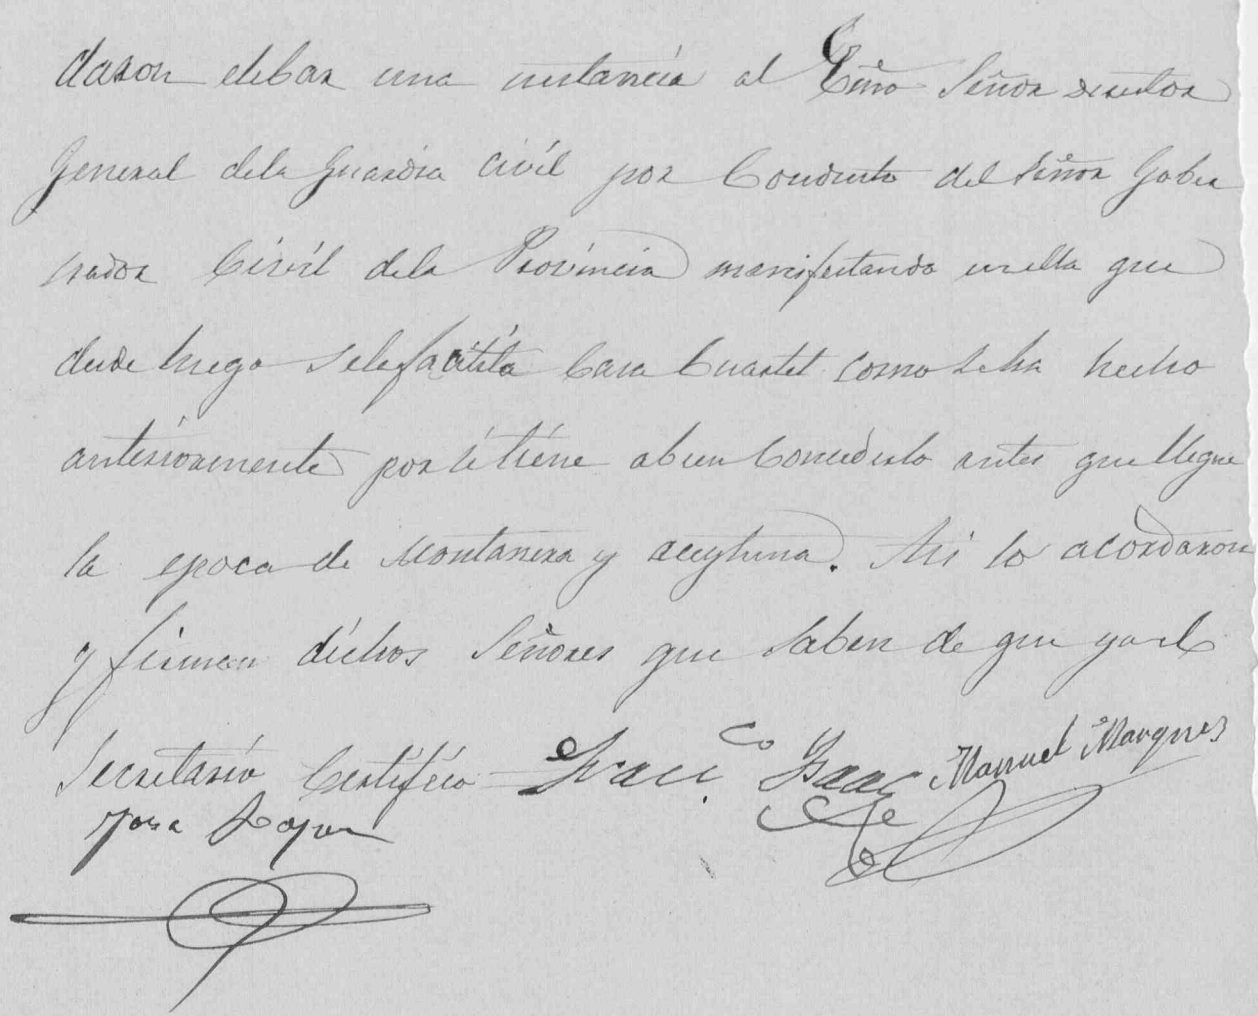 daron elebar una instancia al Esmo Señor Director
General dela Guardia Civil por Conducto del Señor Gober
nador Civil dela Provincia manifestando enella que
desde luego selefacilita Casa Cuartel como seha hecho
anteriormente por sitiene abien Concederlo antes que llegue
la epoca de Montanera y aceytuna. Asi lo acordaron
y firman dichos Señores que saben de que yo el
Secretario Certifico Franco Isaac Manuel Marques
Jose